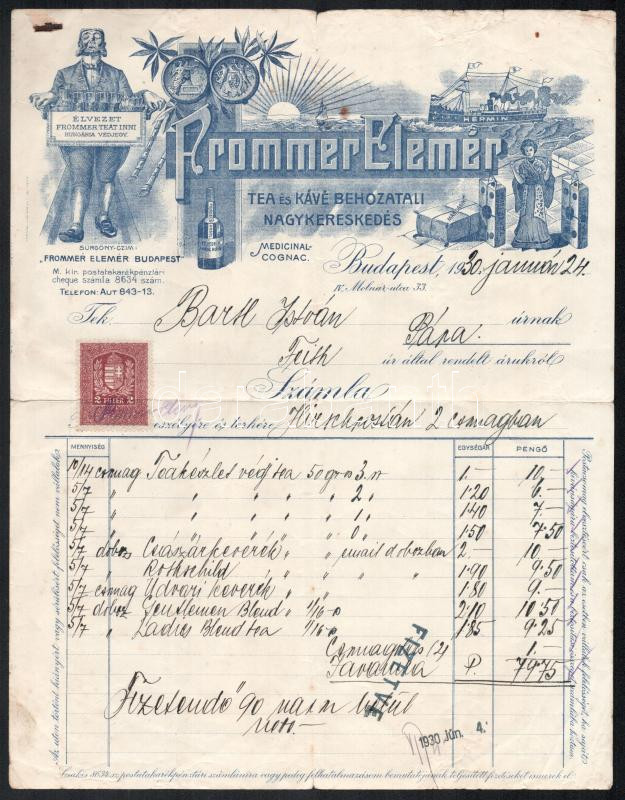 ÉLVEZET
FROMMER TEÁT INNI
HUNGÁRIA VÉDJEGY.
HERMIN
Frommer Elemér
TEA ÉS KÁVÉ BEHOZATALI
NAGYKERESKEDÉS
SÜRGÖNY-CZIM:
"FROMMER ELEMÉR BUDAPEST"
M. kir. postatakarékpénztári
cheque számla 8634 szám.
TELEFON: AUT 843-13.
MEDICINAL-
COGNAC.
Budapest, 1930. január 24.
IV. Molnár-utca 33.
Tek. Bartl István úrnak
Pápa
Feith úr által rendelt árukról
Számla
2 FILLÉR 2
veszélyére és terhére 2 csomagban
MENNYISÉG EGYSÉGÁR PENGŐ
10/14 csomag védj tea 50 gr os 3. 1.- 10.-
5/7 " " " " 2. 1·20 6.-
5/7 " " " " 1. 1·40 7.-
5/7 " " " " 0. 1·50 7·50
5/7 doboz Császárkeverék " " email dobozban 2.- 10.-
5/7 " Rothschild " " " 1·90 9·50
5/7 csomag Udvari keverék " " 1·80 9.-
5/7 doboz Gentlemen Blend " 1/16-o 2·10 10·50
5/7 " Ladies Blend tea " 1/16-o 1·85 9·25
Csomagolás (2) 1.-
P. 79·75
FIZETVE
Fizetendő 90 napon belül
netto.
1930 JÚN. 4.
Az úton történt hiányért vagy sérülésért felelősséget nem vállalok.
Csakis 8634 sz. postatakarékpénztári számlámra vagy pedig felhatalmazásom bemutatójának teljesített fizetéseket ismerek el.